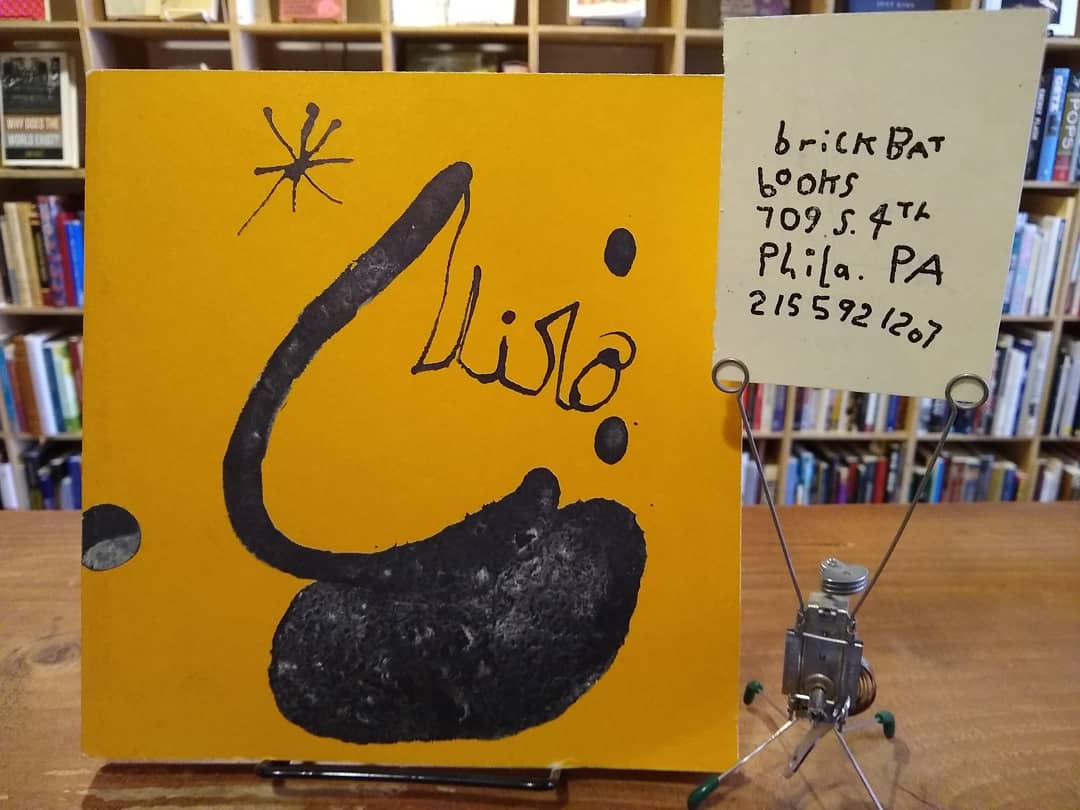 Miró
brickBat
books
709 S. 4Th
Phila. PA
215 592 1207
WHY DOES THE
WORLD EXIST?
POPS